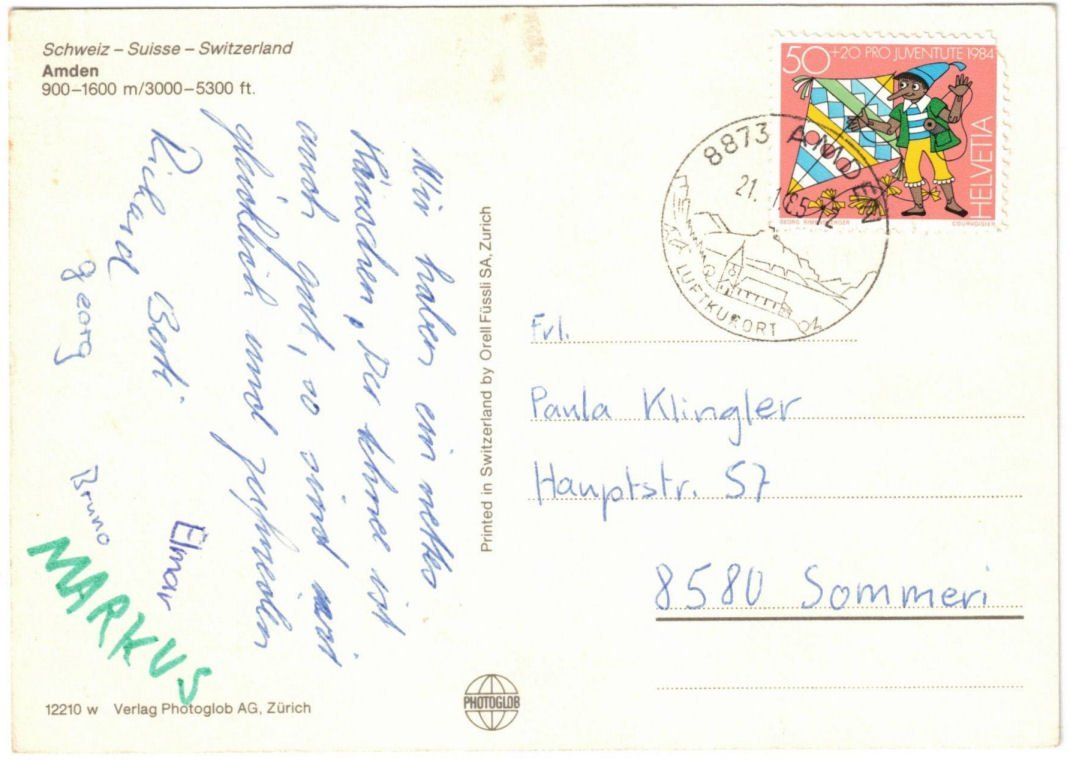 Schweiz – Suisse – Switzerland
Amden
900–1600 m/3000–5300 ft.
Wir haben ein nettes
Häuschen. Der Schnee ist
auch gut, so sind wir
glücklich und zufrieden
Richard Berti
georg
Bruno
Elmar
MARKUS
12210 w Verlag Photoglob AG, Zürich
Printed in Switzerland by Orell Füssli SA, Zurich
PHOTOGLOB
50+20 PRO JUVENTUTE 1984
HELVETIA
COURVOISIER
8873 AMDEN
21. 1. 85-12
LUFTKURORT
Frl.
Paula Klingler
Hauptstr. 57
8580 Sommeri